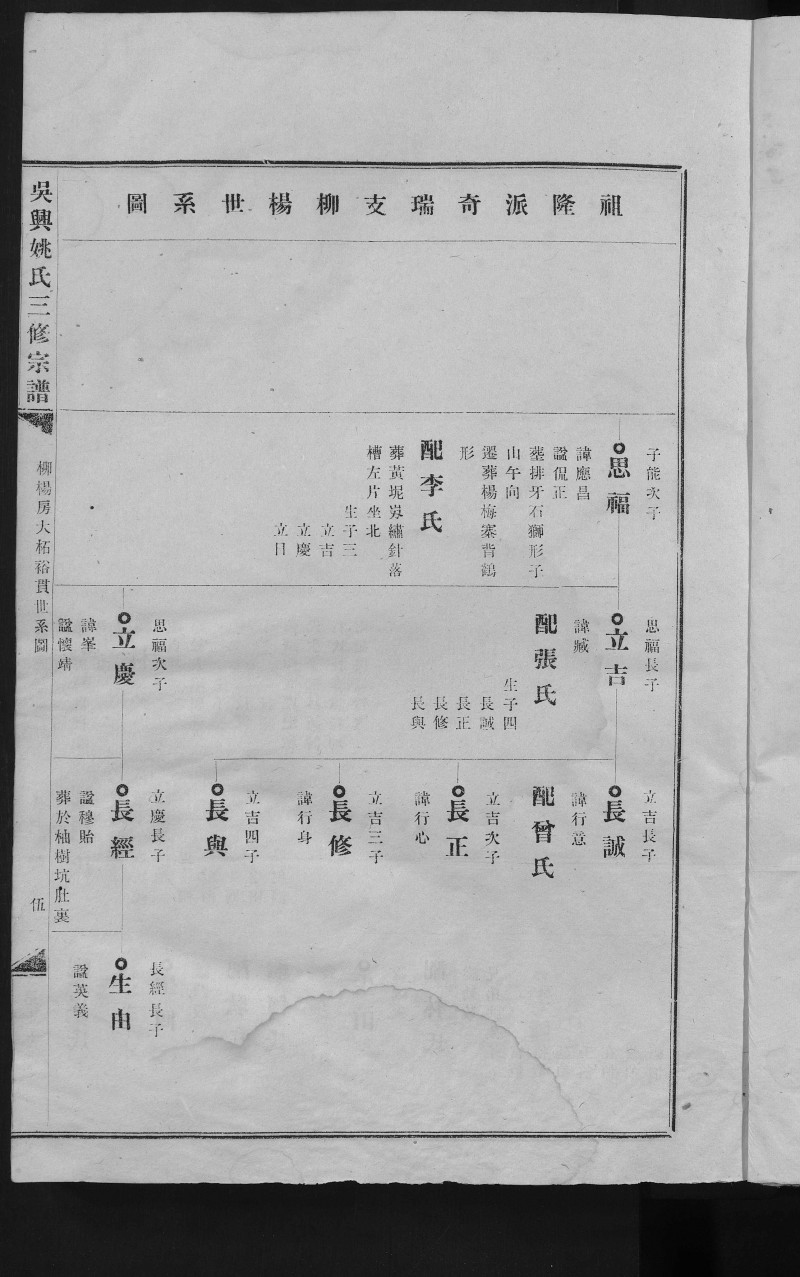 祖隆派奇瑞支柳楊世系圖
子能次子
思福
諱應昌
諡侃正
墓排牙石獅形子
山午向
遷葬楊梅寨背鶴
形
配李氏
葬黃坭嵏繡針落
槽左片坐北
生子三
立吉
立慶
立日
思福長子
立吉
諱臧
配張氏
生子四
長誠
長正
長修
長與
思福次子
立慶
諱峯
諡懷靖
立吉長子
長誠
諱行意
配曾氏
立吉次子
長正
諱行心
立吉三子
長修
諱行身
立吉四子
長與
立慶長子
長經
諡穆貽
葬於柚樹坑肚裏
長經長子
生由
諡英義
吳興姚氏三修宗譜
柳楊房大柘裕貫世系圖
伍